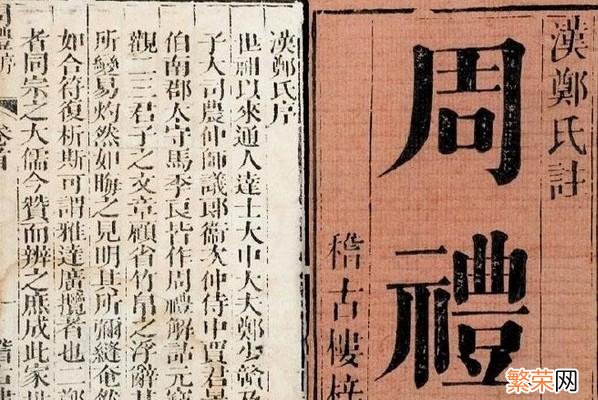 漢鄭氏註
周禮
稽古樓梓
漢鄭氏序
世祖以來通人達士大中大夫鄭少贛及
子大司農仲師議郎衞次仲侍中賈君景
伯南郡太守馬季良皆作周禮解詁元竊
觀二三君子之文章顧省竹帛之浮辭其
所變易灼然如晦之見明其所彌縫奄然
如合符復析斯可謂雅達廣攬者也二鄭
者同宗之大儒今贊而辨之庶成此家世
周禮序 卷首 稽古
繁荣网